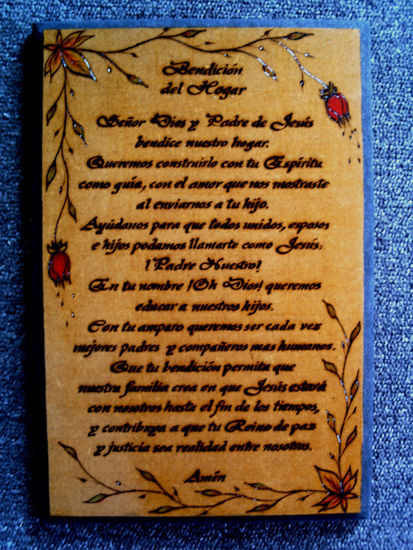 Bendición
del Hogar
Señor Dios y Padre de Jesús
bendice nuestro hogar.
Queremos construirlo con tu Espíritu
como guía, con el amor que nos mostraste
al enviarnos a tu hijo.
Ayúdanos para que todos unidos, esposos
e hijos podamos llamarte como Jesús:
¡Padre Nuestro!
En tu nombre ¡Oh Dios! queremos
educar a nuestros hijos.
Con tu amparo queremos ser cada vez
mejores padres y compañeros mas humanos.
Que tu bendición permita que
nuestra familia crea en que Jesús estará
con nosotros hasta el fin de los tiempos,
y contribuya a que tu Reino de paz
y justicia sea realidad entre nosotros.
Amén